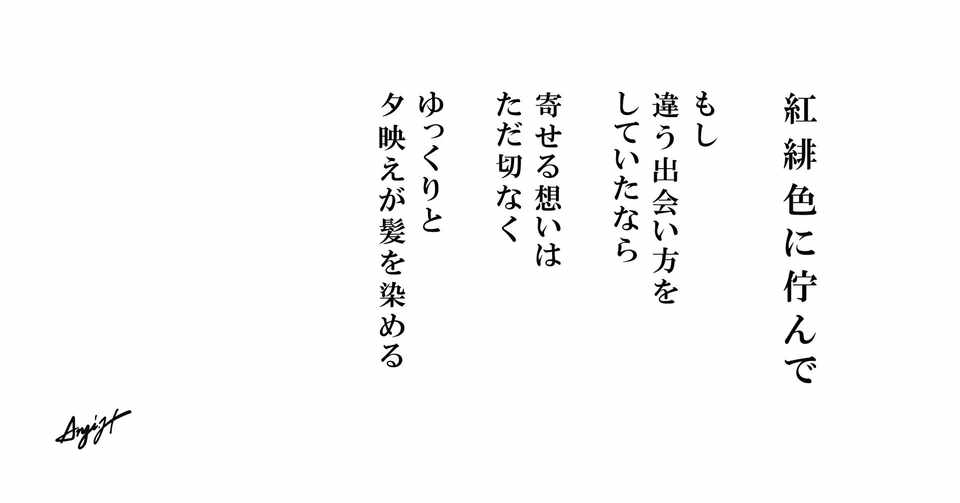 紅緋色に佇んで
もし
違う出会い方を
していたなら
寄せる想いは
ただ切なく
ゆっくりと
夕映えが髪を染める